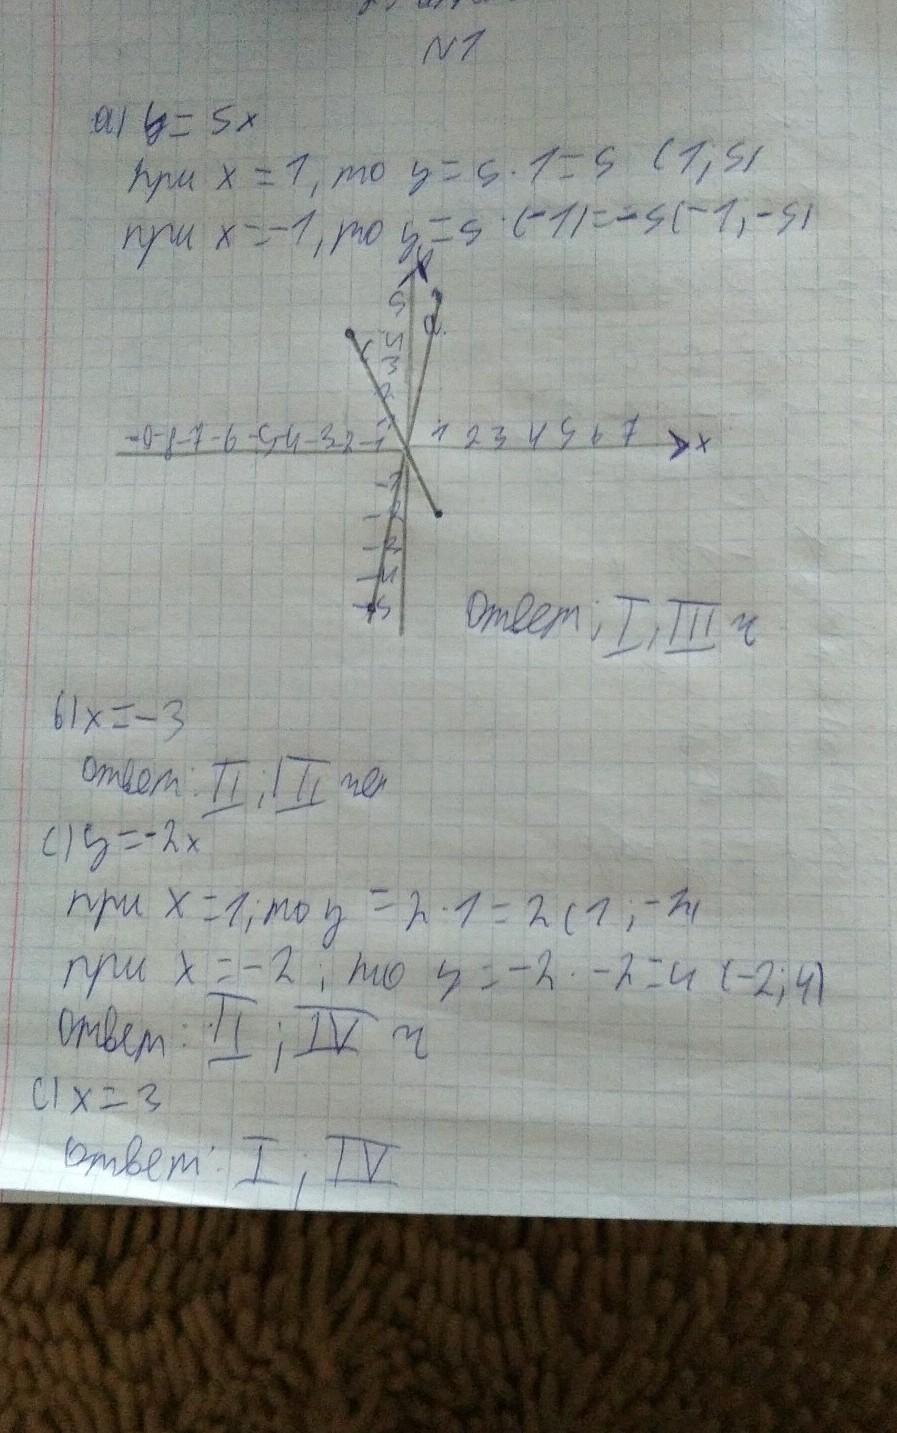 N1
а) y = 5x
при x = 1, то y = 5 · 1 = 5 (1; 5)
при x = -1, то y = 5 · (-1) = -5 (-1; -5)
5
4
3
2
1
a
c
-8 -7 -6 -5 -4 -3 -2 -1 1 2 3 4 5 6 7 x
-1
-2
-2
-4
-5
Ответ: I; III ч
б) x = -3
Ответ: II; III чет
с) y = -2x
при x = 1, то y = 2 · 1 = 2 (1; -2)
при x = -2; то y = -2 · -2 = 4 (-2; 4)
Ответ: II; IV ч
с) x = 3
Ответ: I; IV